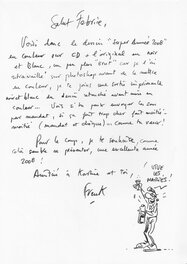 Salut Fabrice,
Voici donc le dessin "Super Année 2008"
en couleur sur CD + l'original en noir
et blanc, un peu plus "brut" car je l'ai
retravaillé sur photoshop avant de le mettre
en couleur, je te joins une sortie imprimante
noir et blanc du dessin retouché avant mise en
couleur... Vois si tu peux envoyer les 200
par mandat, si ça fait trop cher fait moitié-
moitié (mandat et chèque)... comme tu veux!
Pour le coup, je te souhaite, comme
cela semble se présenter, une excellente année
2008!
Amitiés à Karine et toi,
Frank
VIVE
LES
MARIÉES